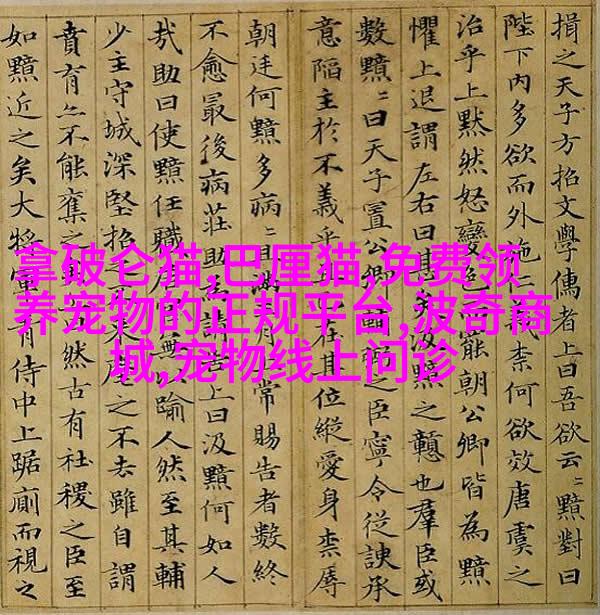 揖之天子方招文學儒者上曰吾欲云〻黯對曰
陛下内多欲而外施仁義柰何欲效唐虞之
治乎上黙然怒變色罷朝公卿皆為黯
懼上退謂左右曰甚矣汲黯之戇也羣臣或
數黯〻曰天子置公卿輔弼之臣寧令從諛承
意陷主於不義乎在其位縱愛身柰辱
朝廷何黯多病〻且滿三月常賜告者數終
不愈最後病莊助為請告上曰汲黯何如人
㢤助曰使黯任職無踰人然至其輔
少主守城深堅招之不來之不去雖自謂
賁育亦不能奪之然古有社稷之臣至
如黯近之矣大將軍青侍中上踞廁而視之
拿破仑猫,巴厘猫,免费领
养宠物的正规平台,波奇商
城,宠物线上问诊